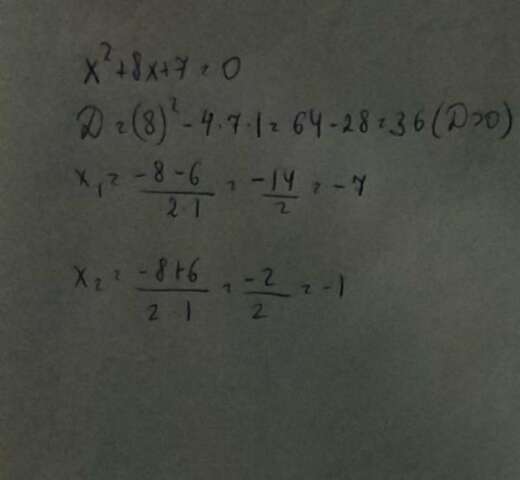 x²+8x+7=0
D=(8)²-4·7·1=64-28=36(D>0)
x₁=\frac{-8-6}{2·1}=\frac{-14}{2}=-7
x₂=\frac{-8+6}{2·1}=\frac{-2}{2}=-1